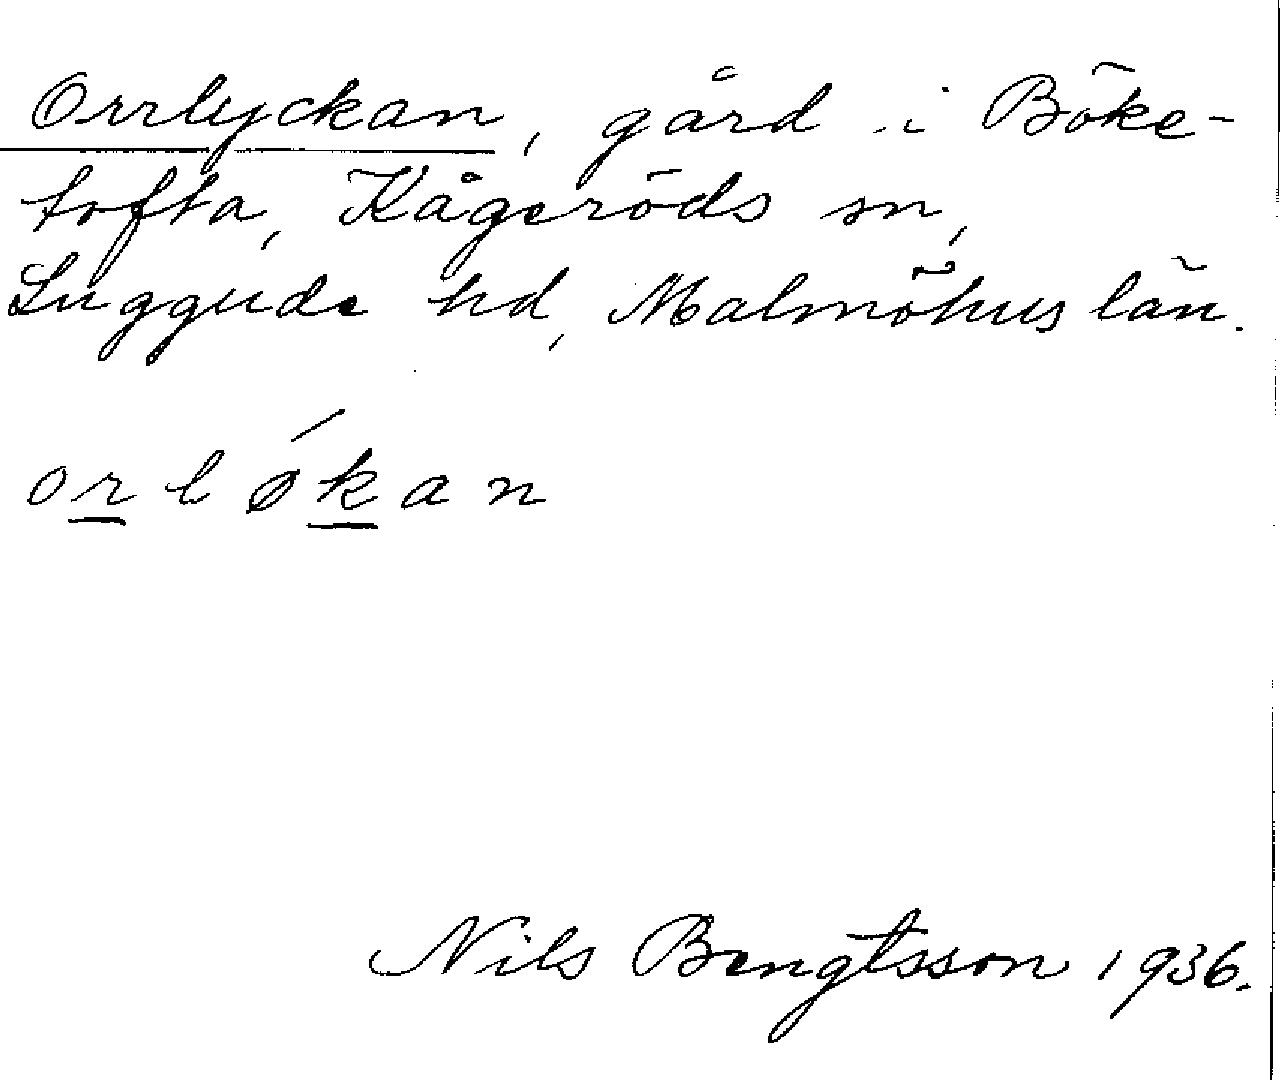 Orrlyckan, gård i Böke-
tofta, Kågeröds sn,
Luggude hd, Malmöhus län.
orløkan
Nils Bengtsson 1936.